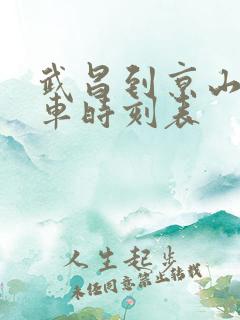 武昌到京山
车时刻表
人生起步
未经同意禁止转载